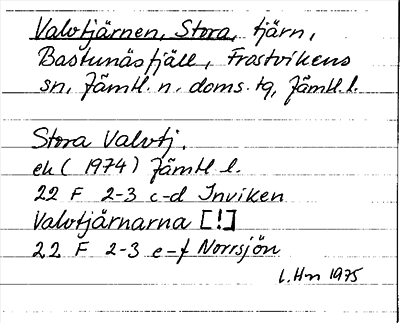 Valvtjärnen, Stora, tjärn,
Bastunäsfjäll, Frostvikens
sn, Jämtl. n. doms. tg, Jämtl. l.
Stora Valvtj.
ek (1974) Jämtl l.
22 F 2-3 c-d Inviken
Valvtjärnarna [!]
22 F 2-3 e-f Norrsjön
l. Hn 1975